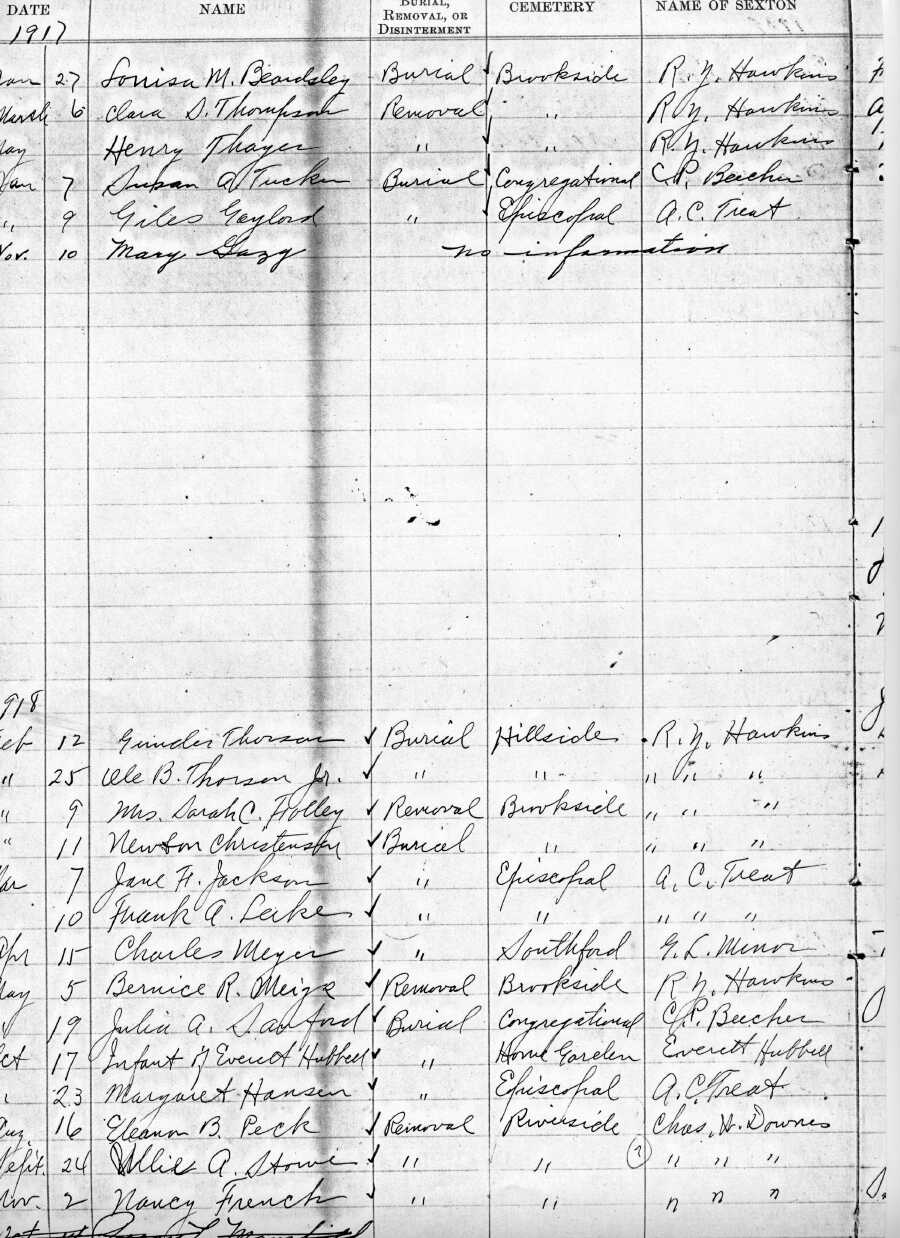 DATE NAME BURIAL, REMOVAL, OR DISINTERMENT CEMETERY NAME OF SEXTON
1917
27 Louisa M. Beardsley Burial ✓ Brookside R. Y. Hawkins
March 6 Clara S. Thompson Removal ✓ " R. Y. Hawkins
May Henry Thayer " ✓ " R. Y. Hawkins
7 Susan A Tucker Burial ✓ Congregational C.P. Beecher
" 9 Giles Gaylord " ✓ Episcopal A. C. Treat
Nov. 10 Mary no information
1918
Feb 12 Thorson ✓ Burial Hillside R. Y. Hawkins
" 25 Ole B. Thorson Jr. ✓ " " " " "
" 9 Mrs. Sarah C. ✓ Removal Brookside " " "
" 11 Newton Christensen ✓ Burial " " " "
Mar 7 Jane H. Jackson ✓ " Episcopal A. C. Treat
10 Frank A. Leike ✓ " " " " "
Apr 15 Charles Meyer ✓ " Southford G. L. Minor
May 5 Bernice R. Meigs ✓ Removal Brookside R Y. Hawkins
" 19 Julia A. Sanford ✓ Burial Congregational C.P. Beecher
Oct 17 Infant of Everett Hubbell ✓ " Home Garden Everett Hubbell
" 23 Margaret Hansen ✓ " Episcopal A. C. Treat
Aug. 16 Eleanor B. Peck ✓ Removal Riverside Chas. H. Downes
Sept. 24 A. Stowe ✓ " " (?) " " "
Nov. 2 Nancy French ✓ " " " " "